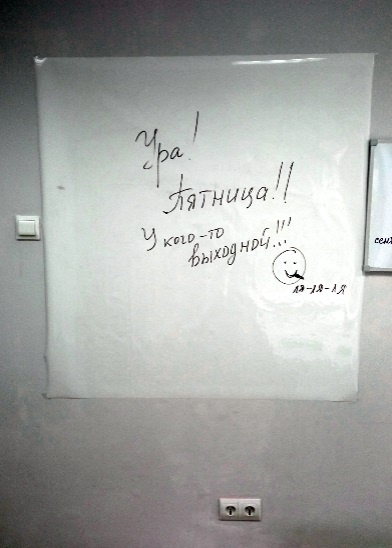 Ура!
Пятница!!
У кого-то
выходной!!!
ля-ля-ля
сент